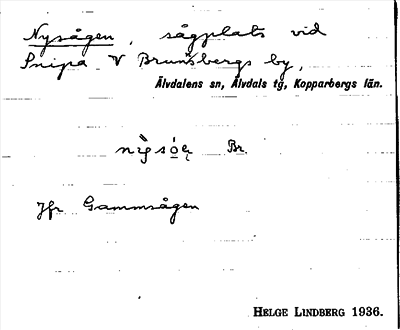 Nysågen, sågplats vid
Snipa V Brunsbergs by,
Älvdalens sn, Älvdals tg, Kopparbergs län.
Br.
Jfr Gammsågen
HELGE LINDBERG 1936.